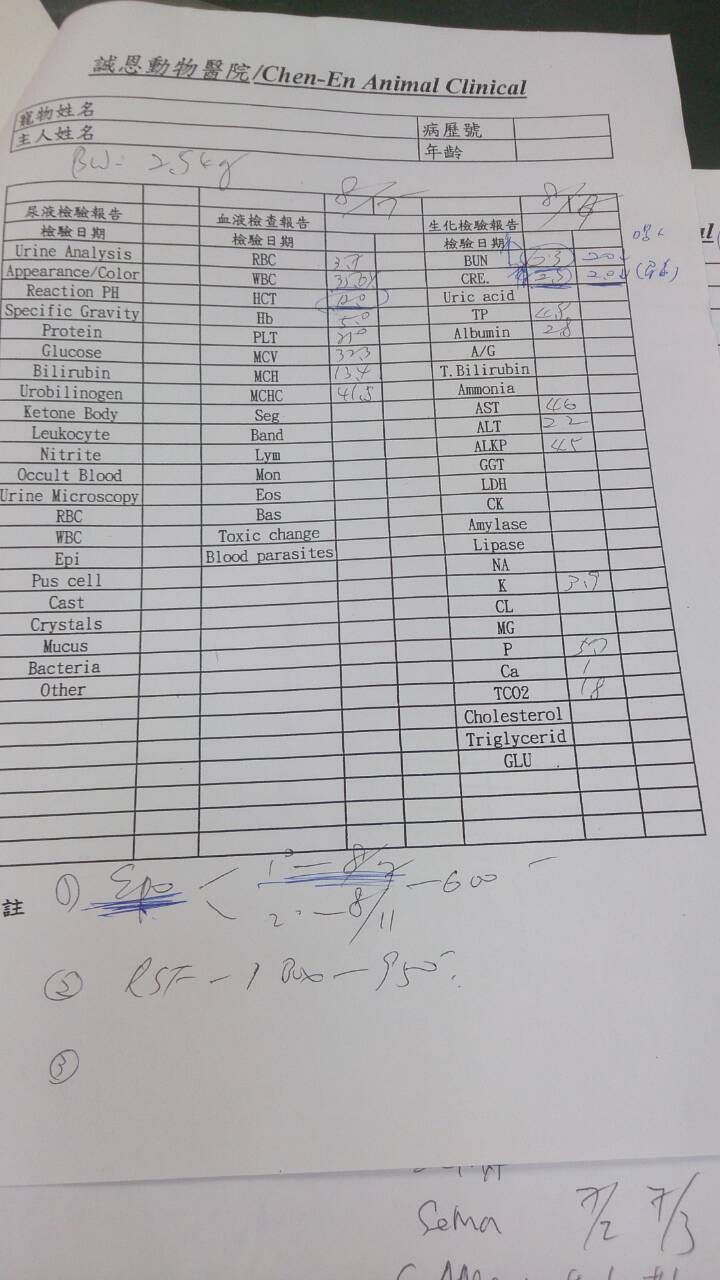 誠恩動物醫院/Chen-En Animal Clinical
寵物姓名
主人姓名
病歷號
年齡
BW: 2.5kg
8/7
尿液檢驗報告
血液檢查報告
生化檢驗報告
檢驗日期
檢驗日期
檢驗日期
Urine Analysis RBC BUN
Appearance/Color WBC CRE.
Reaction PH HCT Uric acid
Specific Gravity Hb 5.0 TP
Protein PLT Albumin 2.8
Glucose MCV 32.3 A/G
Bilirubin MCH 13.4 T.Bilirubin
Urobilinogen MCHC 41.5 Ammonia
Ketone Body Seg AST 46
Leukocyte Band ALT 22
Nitrite Lym ALKP 45
Occult Blood Mon GGT
Urine Microscopy Eos LDH
RBC Bas CK
WBC Toxic change Amylase
Epi Blood parasites Lipase
Pus cell NA
Cast K 3.9
Crystals CL
Mucus MG
Bacteria P
Other Ca
TCO2 18
Cholesterol
Triglycerid
GLU
註 ① Epo 1° - 8/7
2° - 8/11 - 600
② RSF - 1 Box - 950
③
Sema 7/2 7/3